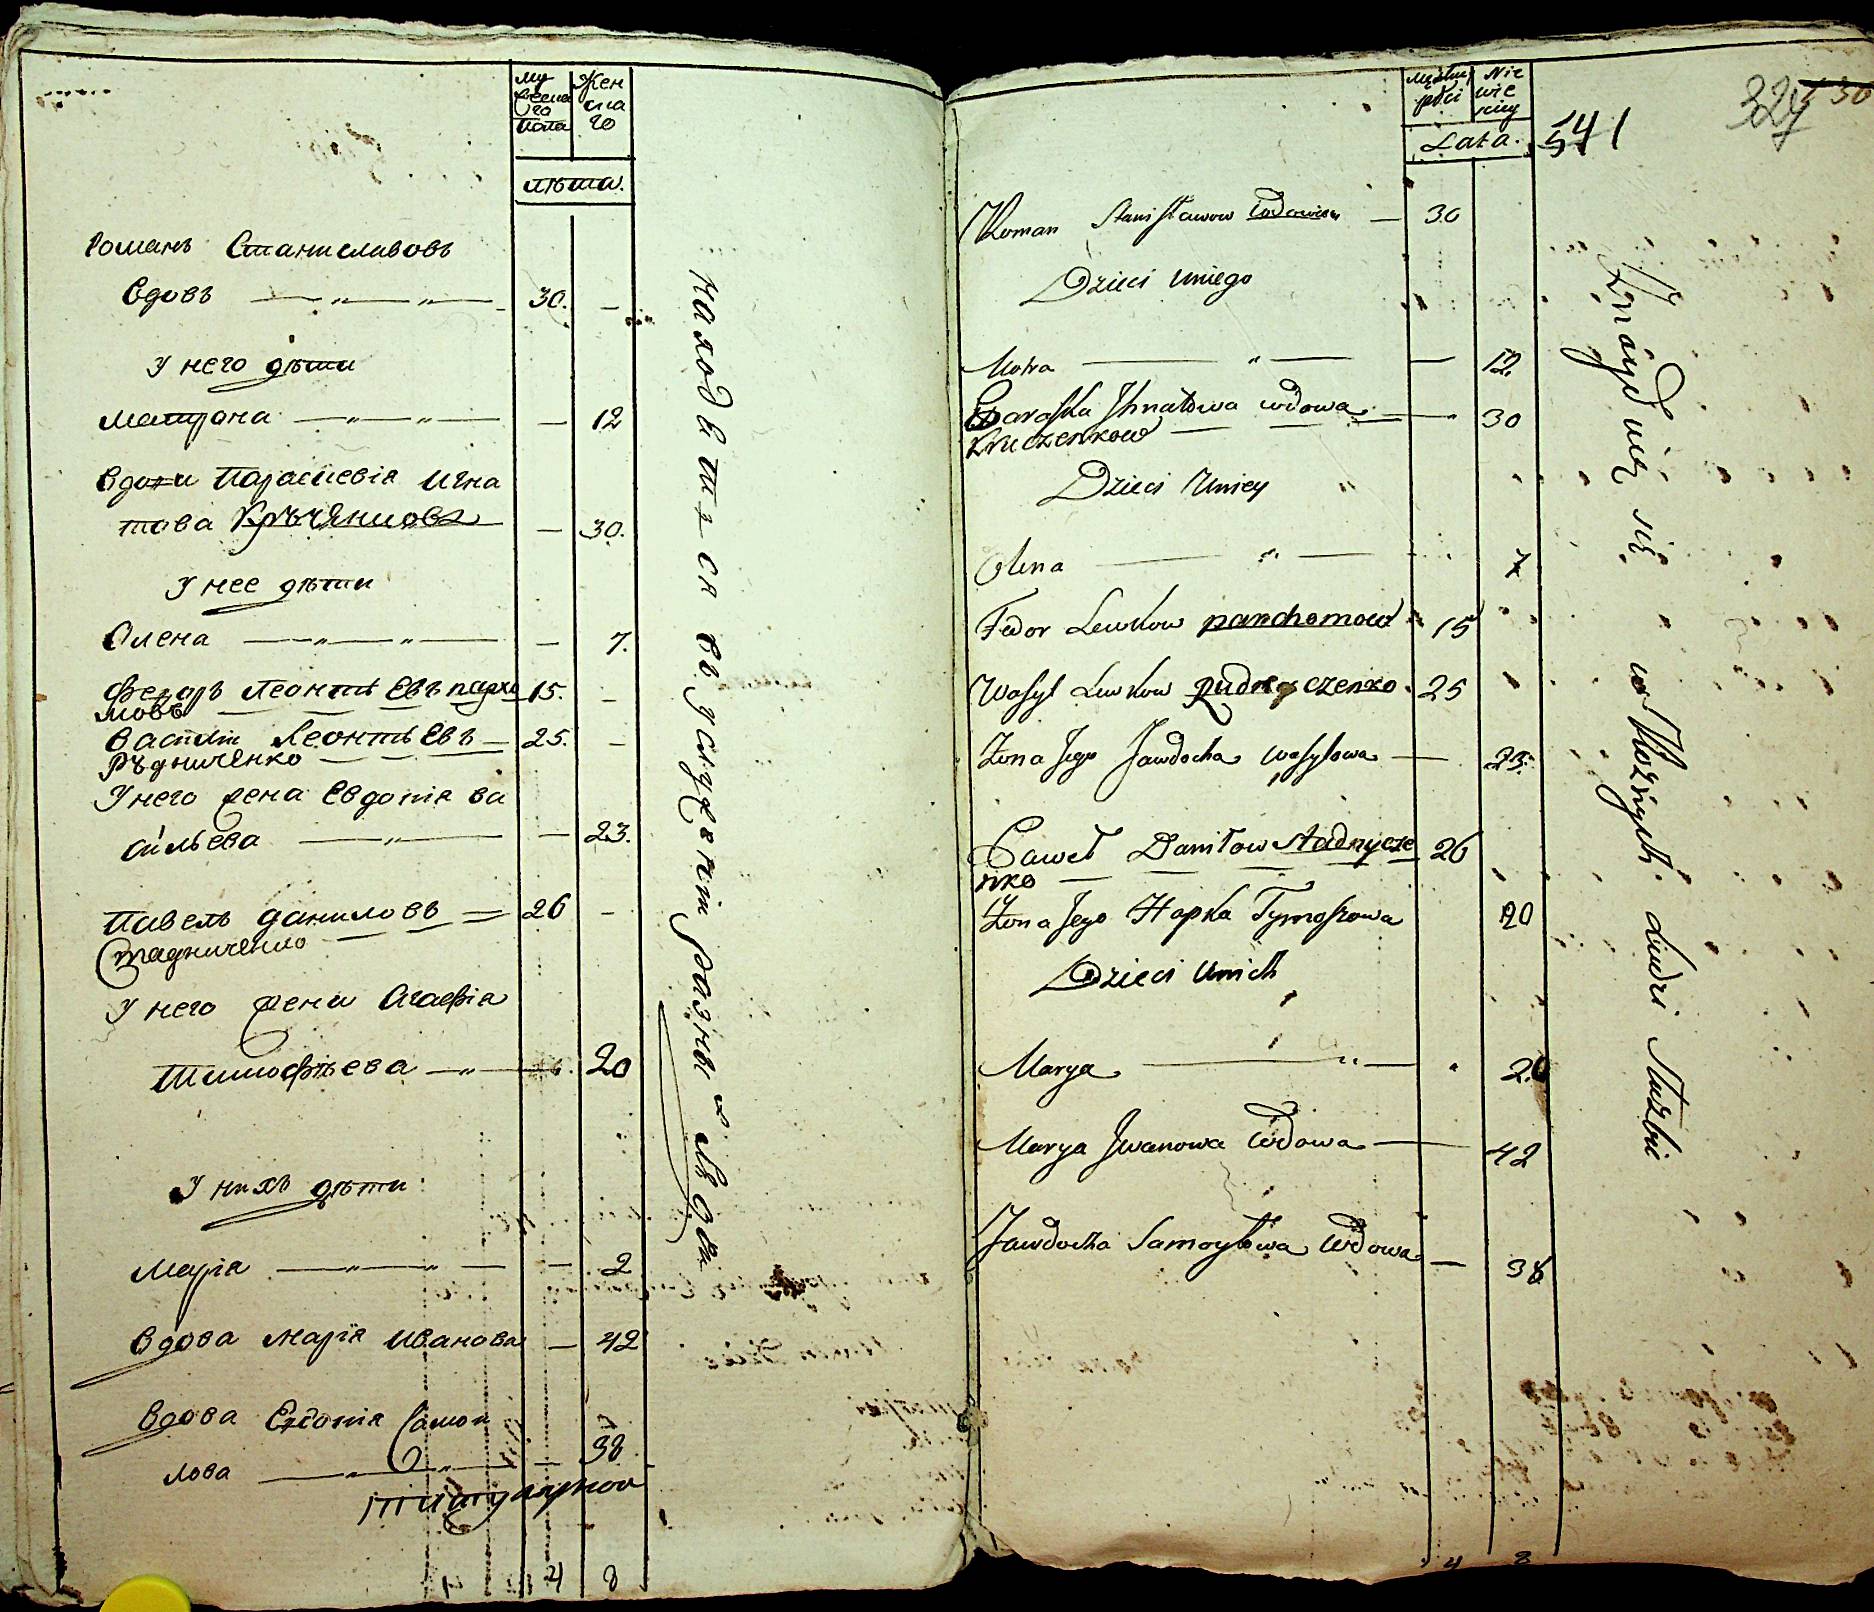 му
жеска
го
пола
Жен
ска
го
лѣта.
Романъ Станиславовъ
вдовъ — „ — „ — 30. —
У него дѣти
Матрона — „ — „ — — 12
Вдова Параскевія Игна
това — 30.
У нее дѣти
Олена — „ — „ — — 7.
Федоръ Леонтіевъ пархо 15. —
мовъ
Василій Леонтіевъ — 25. —
Рѣдниченко
У него жена Евдокія ва
сильева — „ — — 23.
Павелъ даниловъ 26 —
Стадниченко
У него жена Агафія
Тимофѣева — „ — 20
У нихъ дѣти
Марія — „ — „ — — 2
Вдова Марія Иванова — 42
Вдова Евдокія Самой
лова — „ — „ — — 38
4 8
находятся въ услуженіи разны лю
męzkiej
płci
Nie
wie
sciey
Lata.
541
327
Roman Stanisławow wdowiec — 30
Dzieci Uniego
Motra — „ — — 12.
Paraska Ihnatowa wdowa — 30
Kruczenkow
Dzieci Uniey
Olena — „ — 7
Fedor Lewkow parchomow 15
Wasyl Lewkow Rudniczenko 25
Żona Jego Jawdocha Wasylowa — 23.
Paweł Daniłow Stadnycze 26
nko
Żona Jego Hapka Tymoszowa 20
Dzieci Unich
Marya — „ — 2
Marya Jwanowa Wdowa — 42
Jawdocha Samoyłowa Wdowa — 38
4 8
Znayduią się w Rożnych Ludzi Służbie